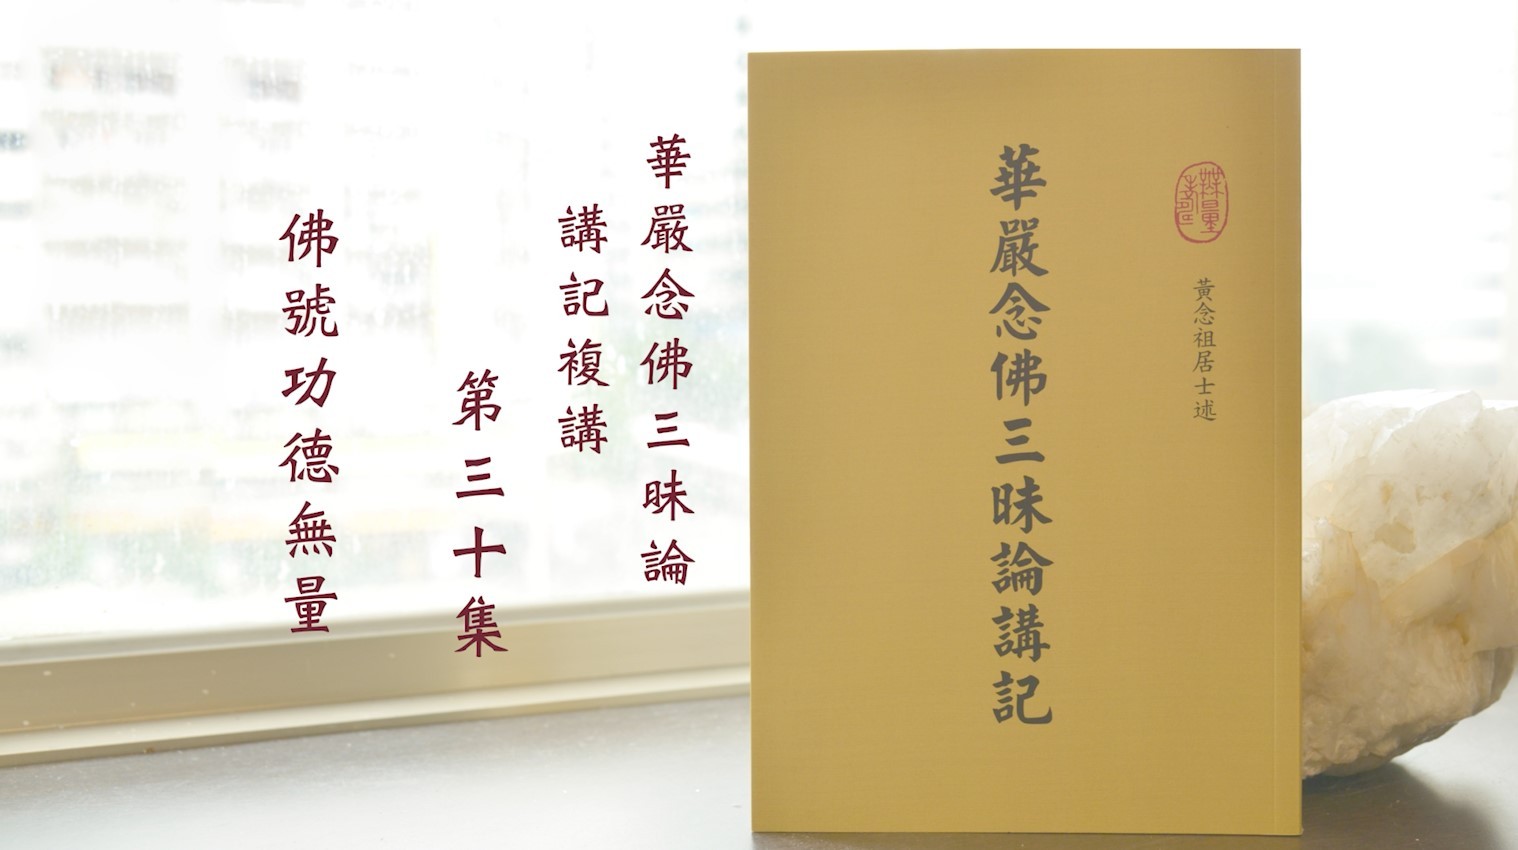 華嚴念佛三昧論
講記複講
第三十集
佛號功德無量
華嚴念佛三昧論講記
黃念祖居士述